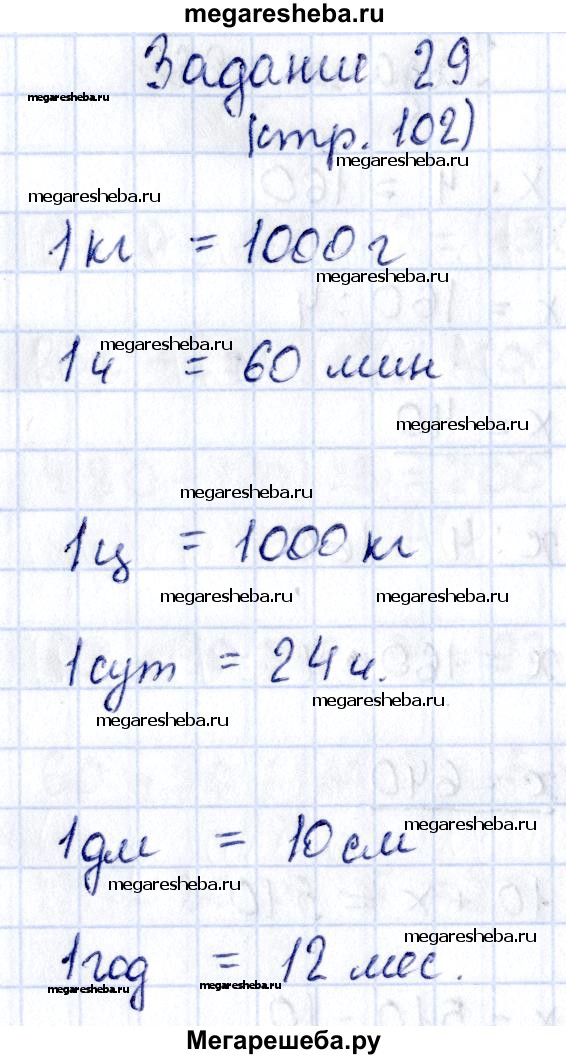 megaresheba.ru
Задание 29
megaresheba.ru
(стр. 102)
megaresheba.ru
megaresheba.ru
1 кг = 1000 г
megaresheba.ru
megaresheba.ru
1 ч = 60 мин
megaresheba.ru
megaresheba.ru
1 ц = 1000 кг
megaresheba.ru megaresheba.ru
1 сут = 24 ч.
megaresheba.ru
megaresheba.ru
megaresheba.ru
1 дм = 10 см
megaresheba.ru
megaresheba.ru
1 год = 12 мес.
megaresheba.ru megaresheba.ru
Мегарешеба.ру